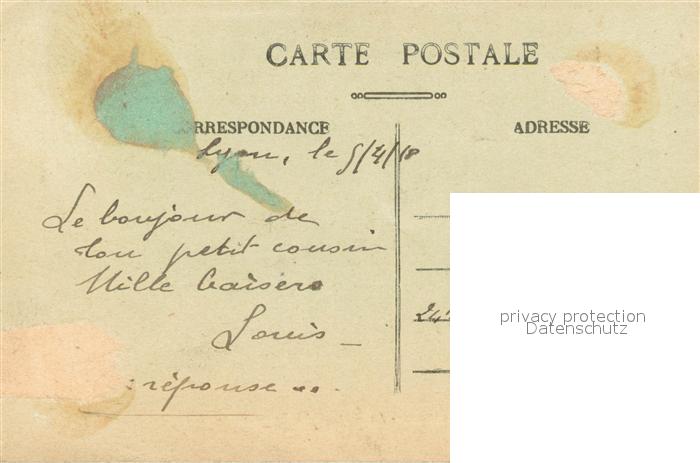 CARTE POSTALE
RRESPONDANCE
ADRESSE
Lyon, le 5/4/18
Le bonjour de
ton petit cousin
Mille baisers
Louis
réponse
privacy protection
Datenschutz